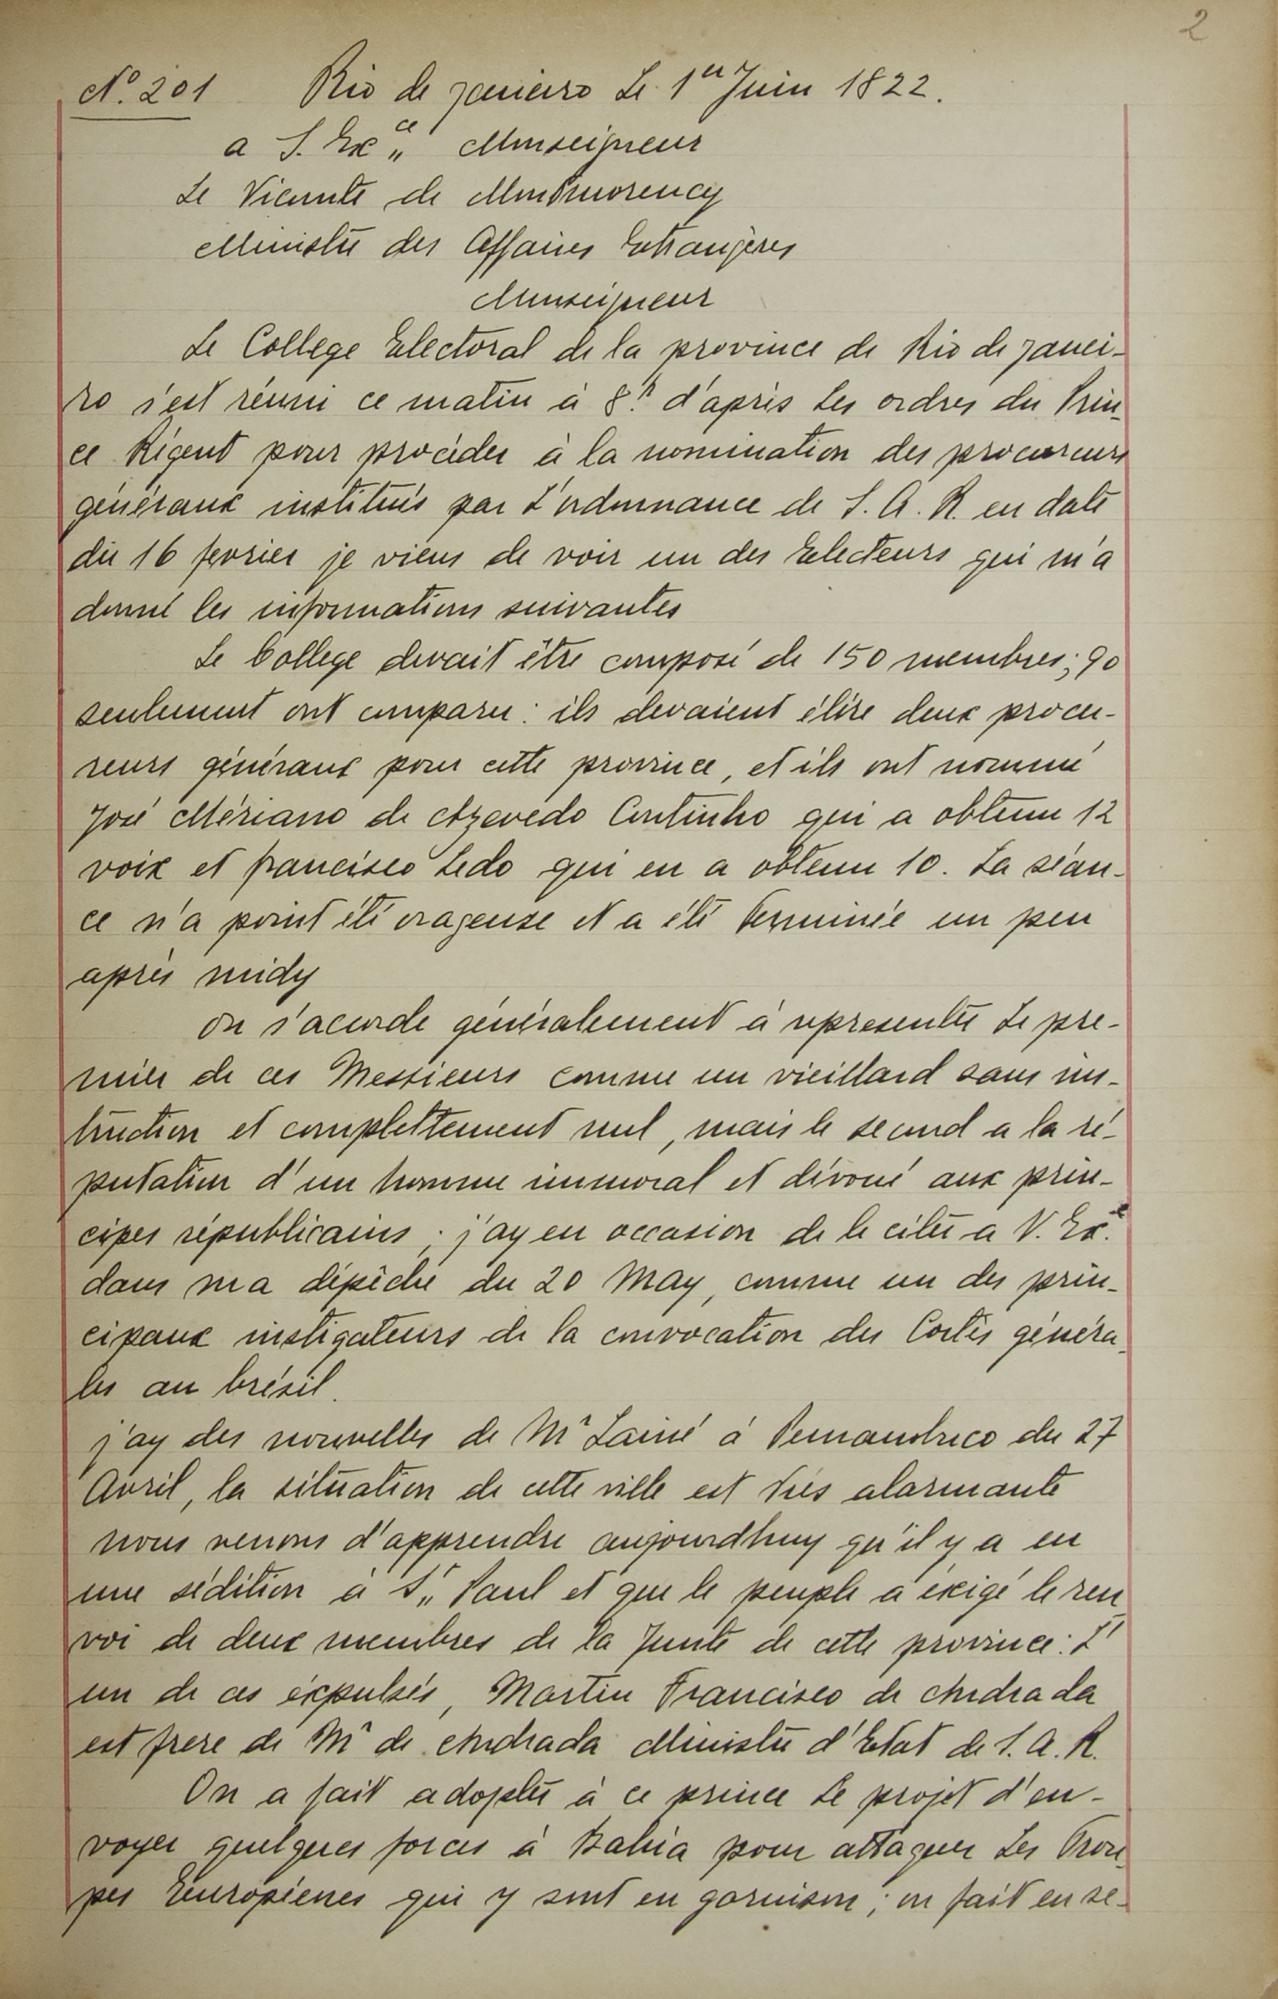 2
Nº. 201 Rio de janeiro Le 1er Juin 1822.
a S. Exce,, Monseigneur
Le Vicomte de Montmorency
Ministre des Affaires Etrangères
Monseigneur
Le College Electoral de la province de Rio de janei-
ro s'est réuni ce matin à 8.h d'après Les ordres du Prin-
ce Régent pour procéder à la nomination des procureurs
généraux institués par L'ordonnance de S. A. R. en date
du 16 fevrier je viens de voir un des Electeurs qui m'a
donné les informations suivantes
Le College devait être composé de 150 membres; 90
seulement ont comparu: ils devaient élire deux procu-
reurs généraux pour cette province, et ils ont nommé
José Mériano de Azevedo Continho qui a obtenu 12
voix et francisco Ledo qui en a obtenu 10. La séan-
ce n'a point été orageuse et a été terminée un peu
après midy
on s'accorde généralement à representer Le pre-
mier de ces Messieurs comme un vieillard sans ins-
truction et complettement nul, mais le second a la ré-
putation d'un homme immoral et dévoué aux prin-
cipes républicains; j'ay eu occasion de le citer a V. Exe.
dans ma dépêche du 20 May, comme un des prin-
cipaux instigateurs de la convocation des Cortès généra-
les au brésil.
j'ay des nouvelles de Mr Lainé à Pernambuco du 27
Avril, la situation de cette ville est très alarmante
nous venons d'apprendre aujourdhuy qu'il y a eu
une sédition à St,, Paul et que le peuple a éxigé le ren
voi de deux membres de la Junte de cette province: L'
un de ces éxpulsés, Martin Francisco de Andrada
est frere de Mr de Andrada Ministre d'Etat de S. A. R.
On a fait adopter à ce prince Le projet d'en-
voyer quelques forces à Bahia pour attaquer Les Trou-
pes Européenes qui y sont en garnison; on fait en se-